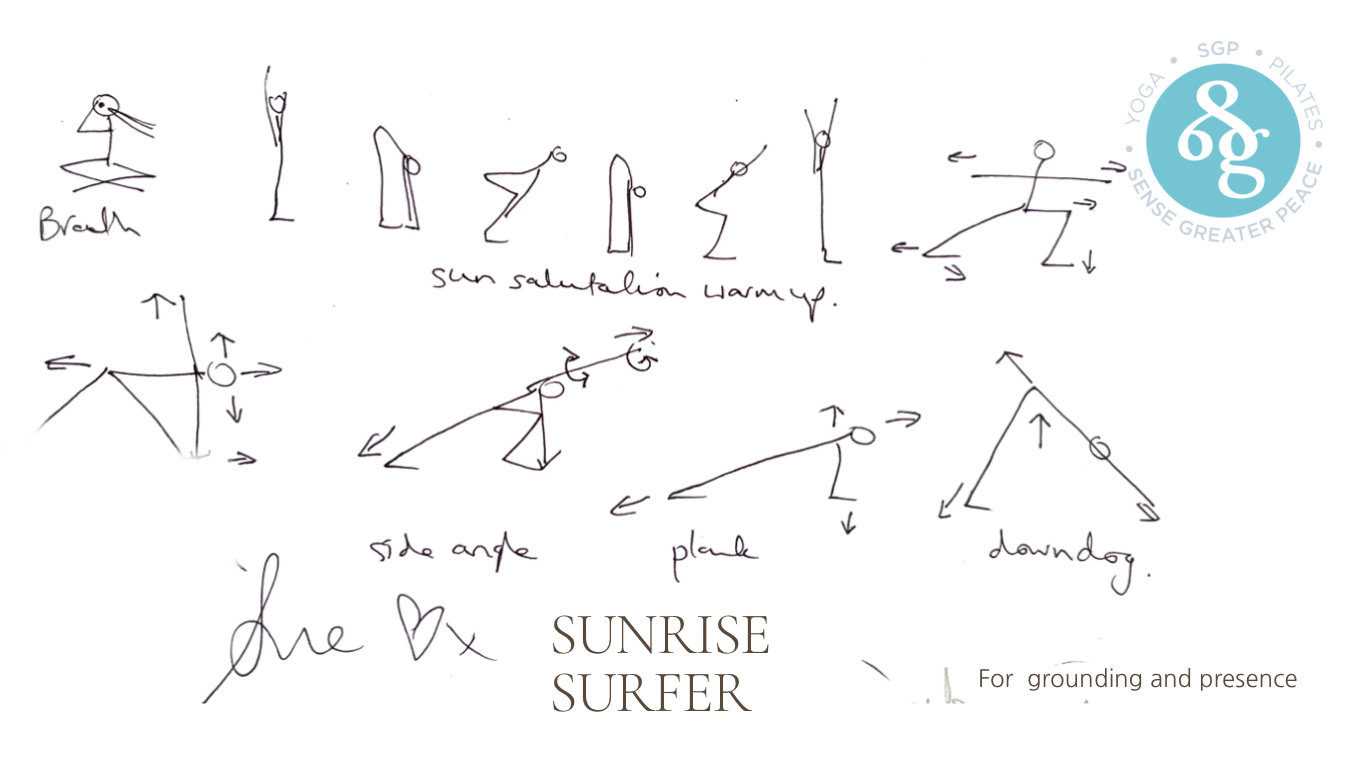 YOGA • SGP • PILATES •
SENSE GREATER PEACE •
Breath
sun salutation warm up.
side angle
plank
downdog.
Sue x
SUNRISE
SURFER
For grounding and presence